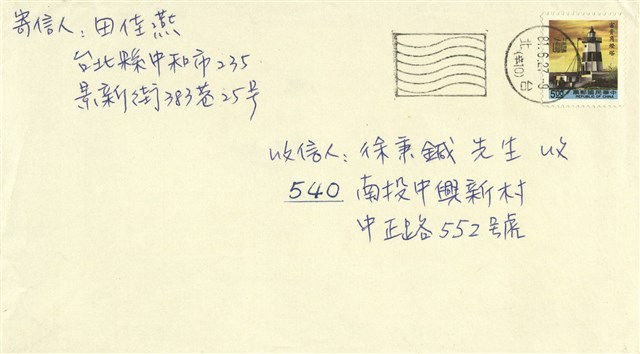 寄信人：田佳燕
台北縣中和市235
景新街383巷25号
收信人：徐秉鋮 先生 收
540 南投中興新村
中正路552號
台 北
87.6.27.-9
500
中華民國郵票
REPUBLIC OF CHINA